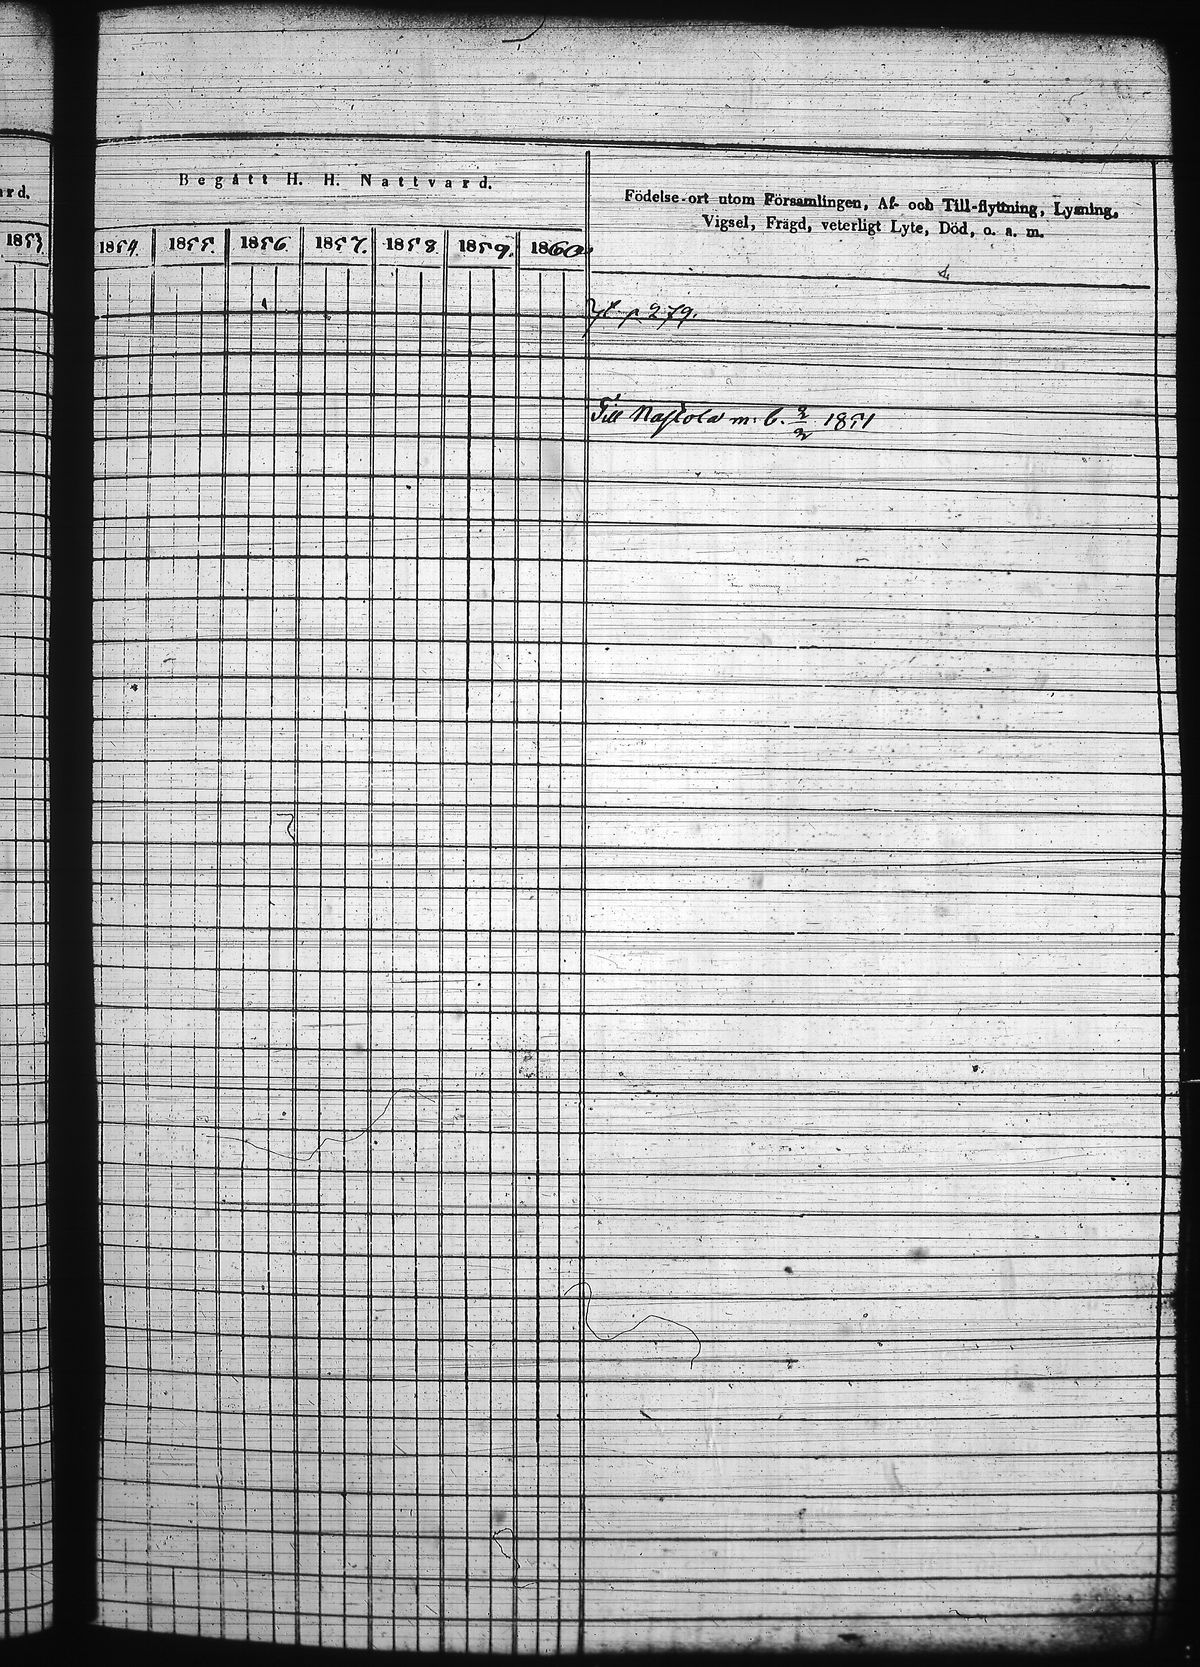 ard.
1853.
Begått H. H. Nattvard.
1854. 1855. 1856. 1857. 1858. 1859. 1860.
Födelse-ort utom Församlingen, Af- och Till-flyttning, Lysning,
Vigsel, Frägd, veterligt Lyte, Död, o. a. m.
p 279.
Till Nastola m. b. 2/2 1851